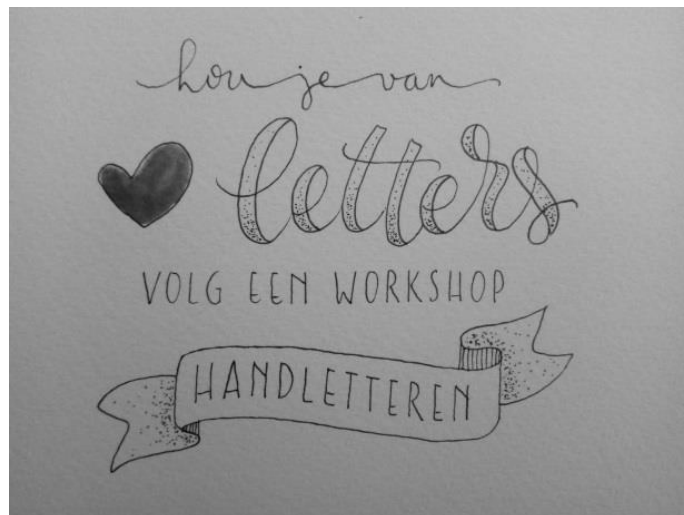 hou je van
letters
VOLG EEN WORKSHOP
HANDLETTEREN